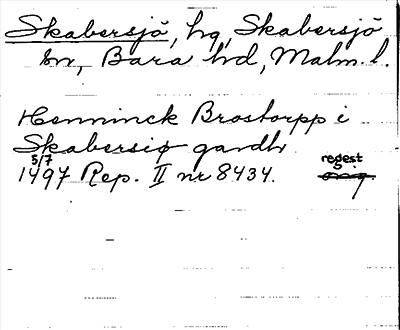 Skabersjö, hg, Skabersjö
sn, Bara hd, Malm. l.
Henninck Brostorpp i
Skabersiø gardh
5/7
1497 Rep. II nr 8434. regest
orig.